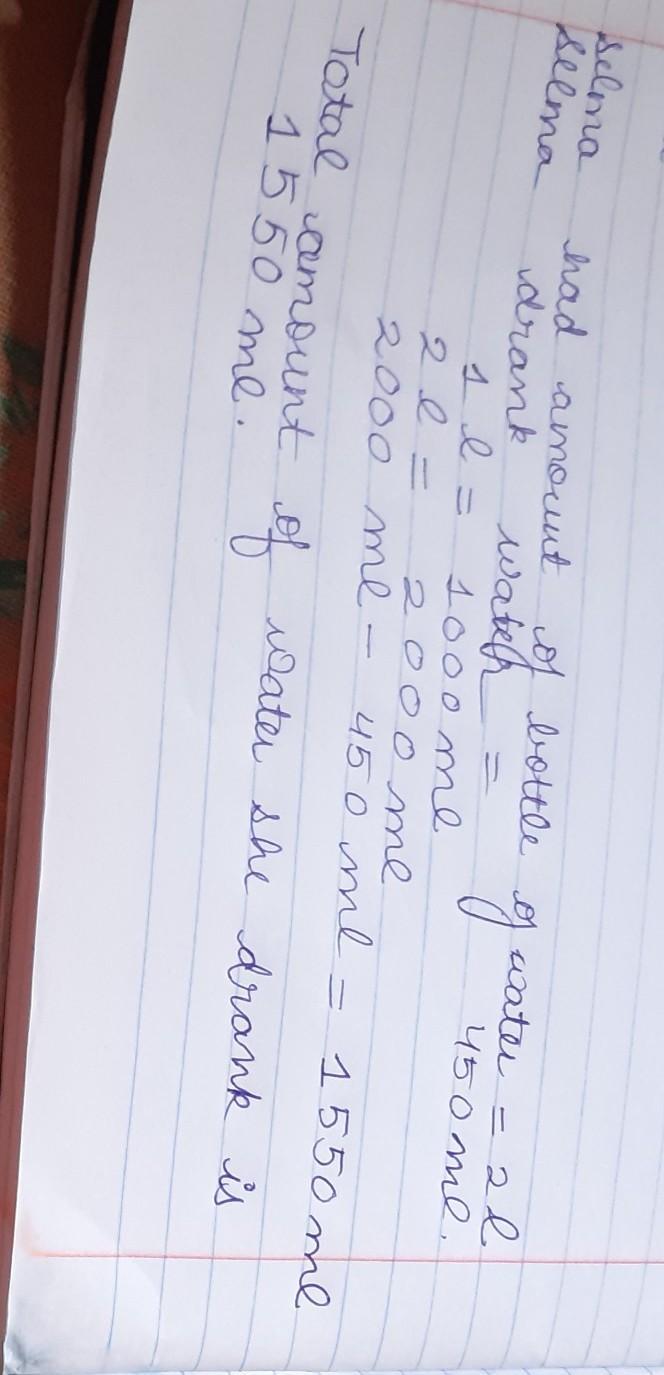 Selma had amount of bottle of water = 2l
Selma drank water = 450 ml.
1 l = 1000 ml
2 l = 2000 ml
2000 ml - 450 ml = 1550 ml
Total amount of water she drank is
1550 ml.